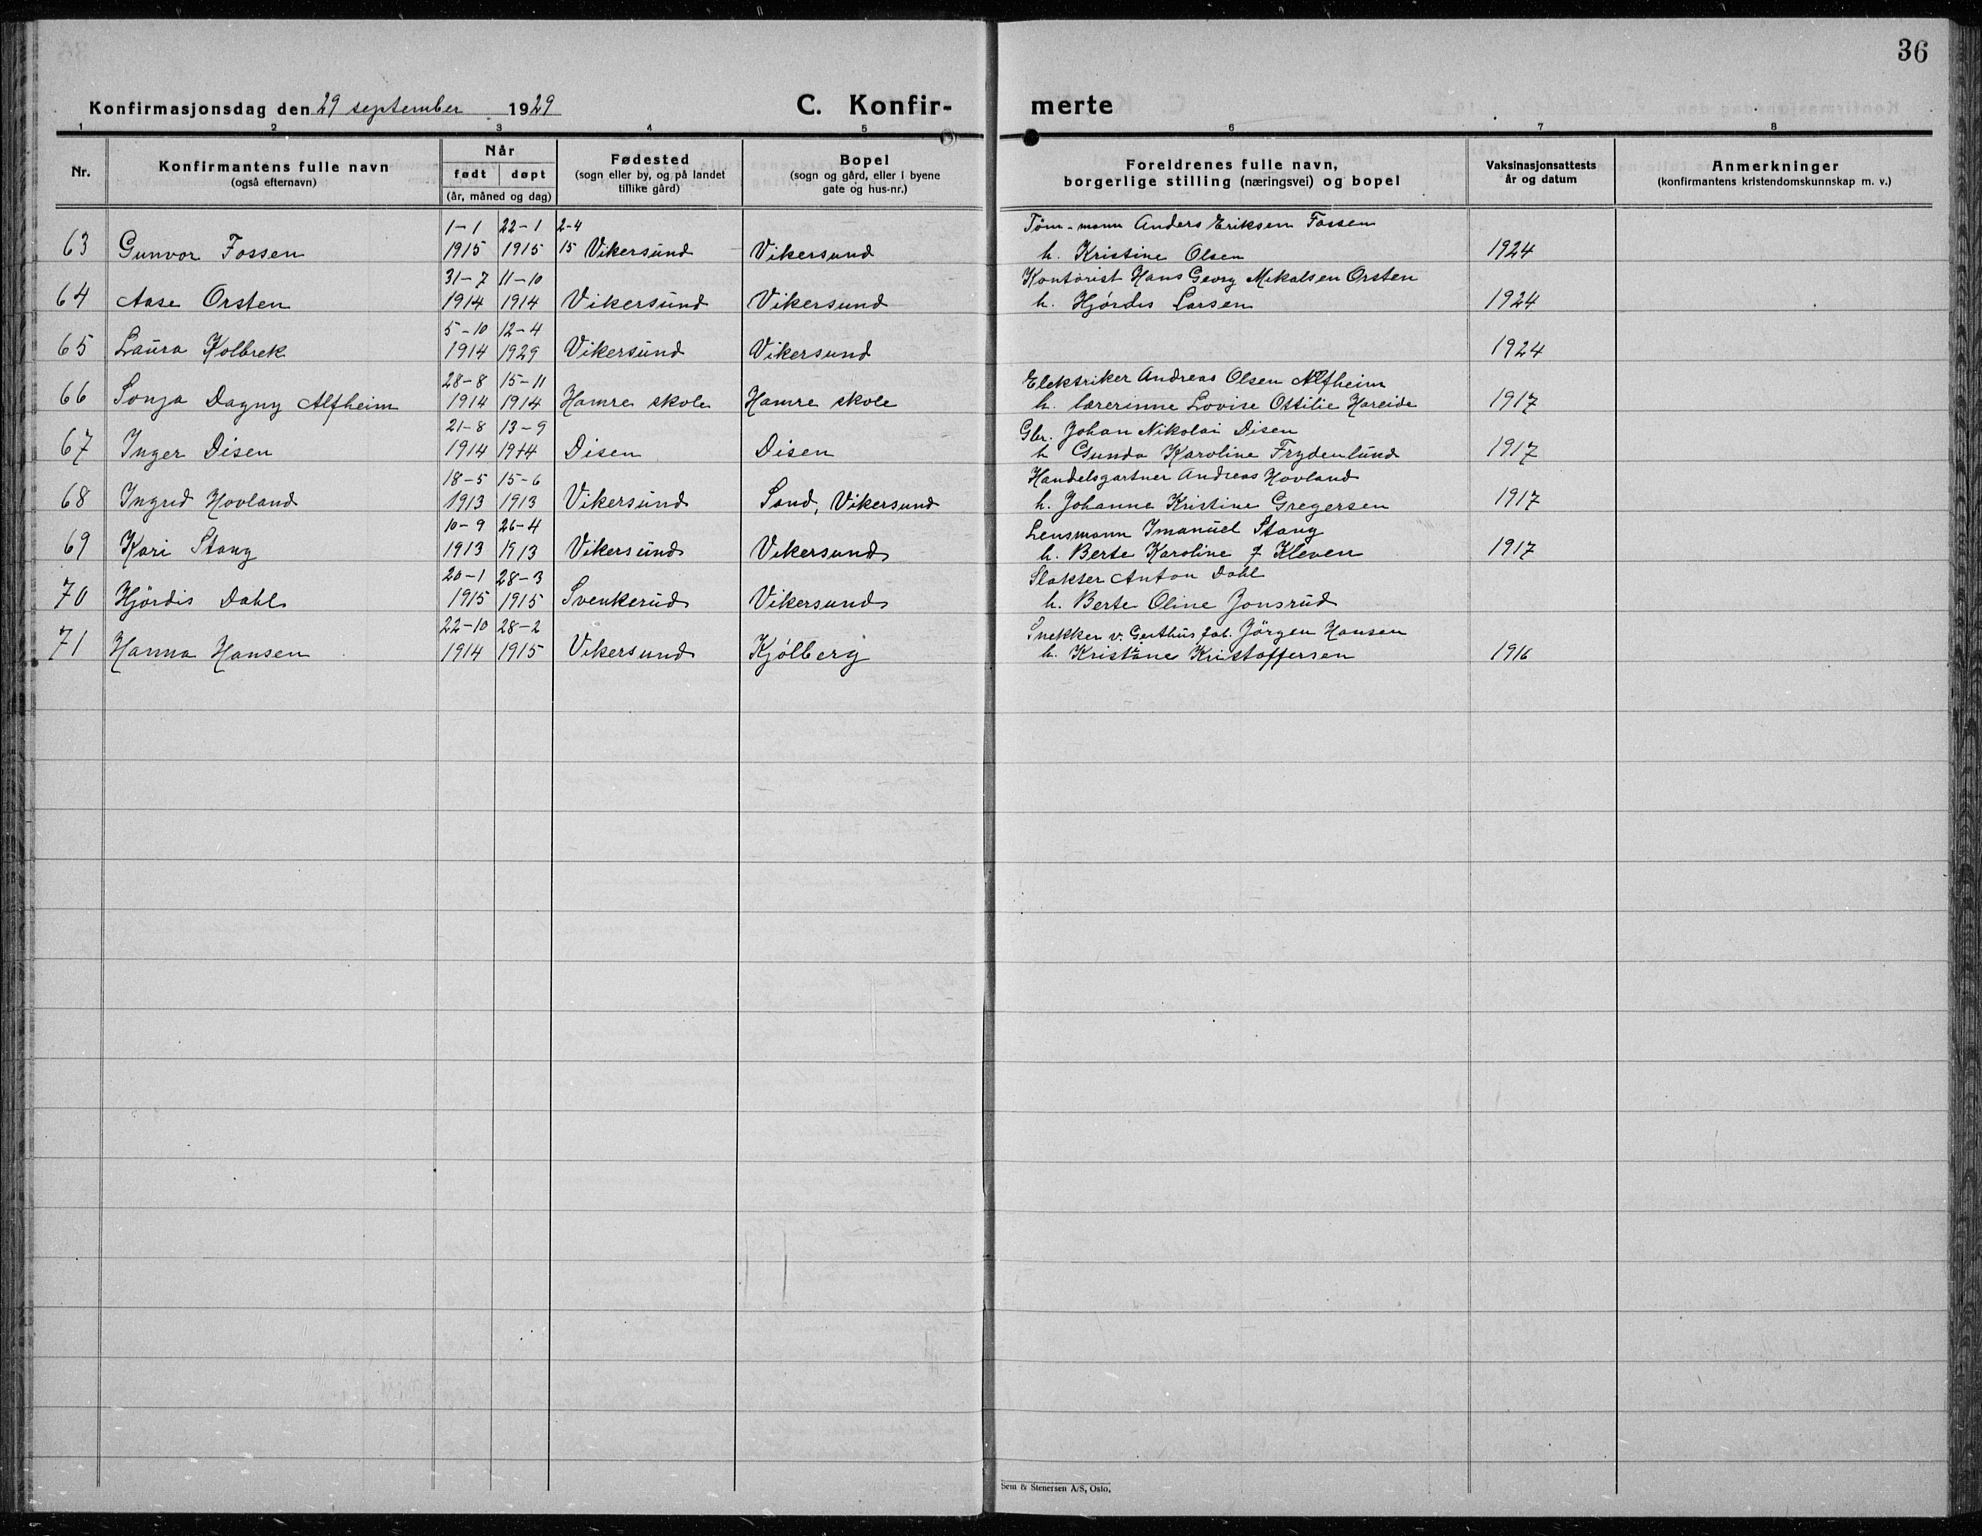 36
Konfirmasjonsdag den 29 september 1929 C. Konfir- merte
1 2 3 4 5 6 7 8
Nr. Konfirmantens fulle navn (også efternavn) Når født døpt (år, måned og dag) Fødested (sogn eller by, og på landet tillike gård) Bopel (sogn og gård, eller i byene gate og hus-nr.) Foreldrenes fulle navn, borgerlige stilling (næringsvei) og bopel Vaksinasjonsattests år og datum Anmerkninger (konfirmantens kristendomskunnskap m. v.)
1-1 22-1 2-4 Tøm-mann Anders Eriksen Fossen
63 Gunvor Fossen 1915 1915 15 Vikersund Vikersund h. Kristine Olsen 1924
31-7 11-10 Kontorist Hans Georg Mikalsen Orsten
64 Aase Orsten 1914 1914 Vikersund Vikersund h. Hjørdis Larsen 1924
5-10 12-4
65 Laura Kolbrek 1914 1929 Vikersund Vikersund 1924
28-8 15-11 Elektriker Andreas Olsen Alfheim
66 Sonja Dagny Alfheim 1914 1914 Hamre skole Hamre skole h. lærerinne Lovise Ottilie Hareide 1917
21-8 13-9 Gbr. Johan Nikolai Disen
67 Inger Disen 1914 1914 Disen Disen h Gunda Karoline Frydenlund 1917
18-5 15-6 Handelsgartner Andreas Hovland
68 Ingrid Hovland 1913 1913 Vikersund Sand, Vikersund h. Johanne Kristine Gregersen 1917
10-9 26-4 Lensmann Imanuel Stang
69 Kari Stang 1913 1913 Vikersund Vikersund h. Berte Karoline f Kleven 1917
20-1 28-3 Slakter Anton Dahl
70 Hjördis Dahl 1915 1915 Svenkerud Vikersund h. Berte Oline Jonsrud
22-10 28-2 Snekker v. Jörgen Hansen
71 Hanna Hansen 1914 1915 Vikersund Kjølberg h. Kristiane Kristoffersen 1916
Sem & Stenersen A/S, Oslo.